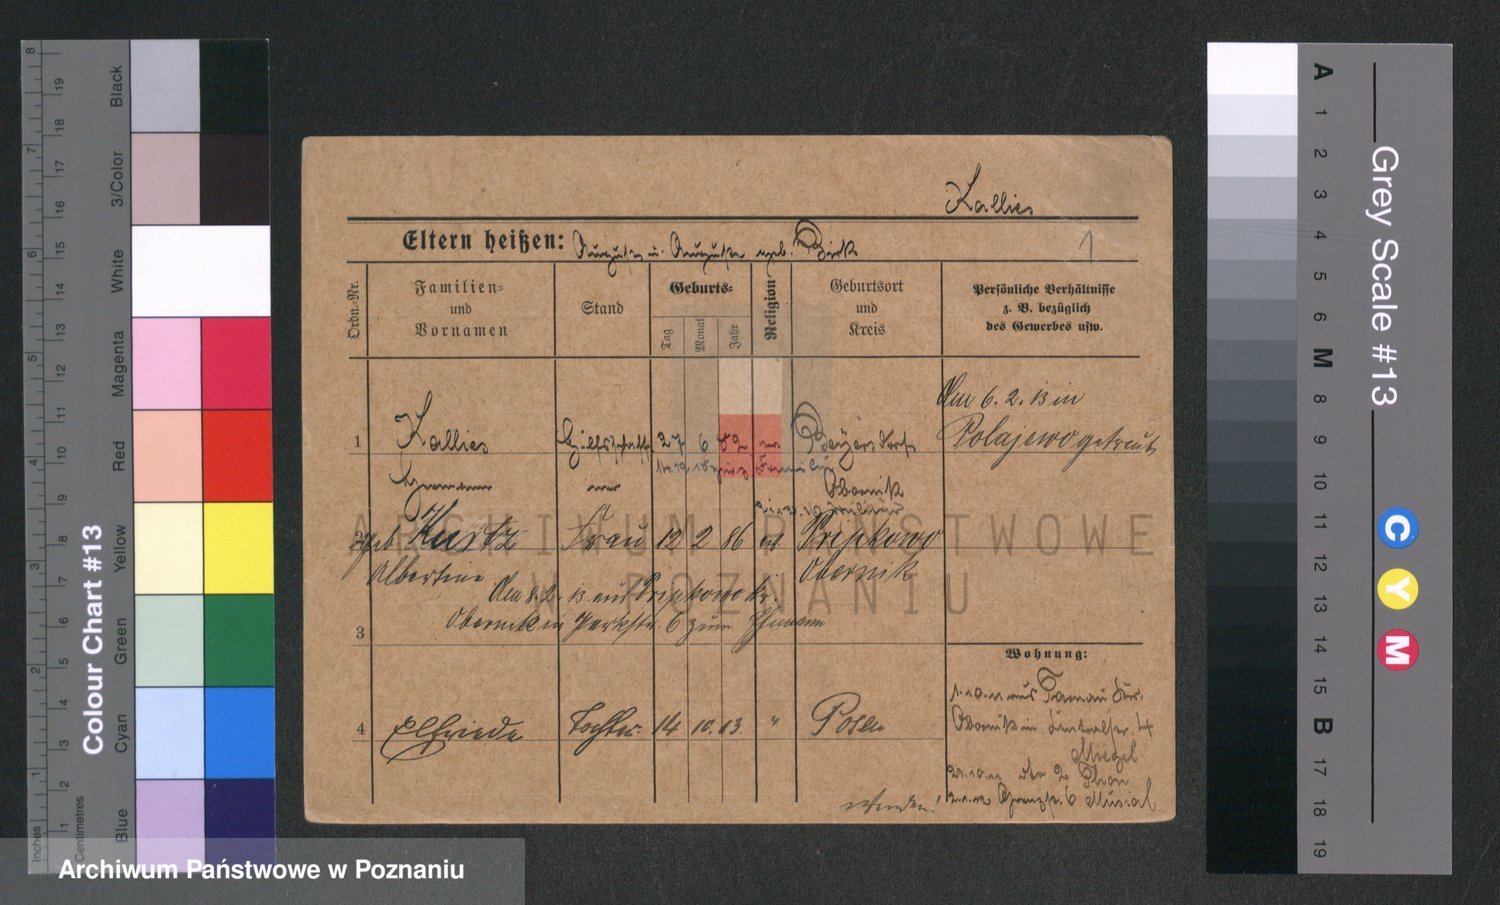 Kallies
Eltern heißen: August u. Auguste geb. Birk
1
Ordn.=Nr.
Familien=
und
Vornamen
Stand
Geburts=
Tag
Monat
Jahr
Religion
Geburtsort
und
Kreis
Persönliche Verhältnisse
z. B. bezüglich
des Gewerbes usw.
1 Kallies 27 6 82 Beyersdorf
Hermann Obornik
Am 6. 2. 13 in
Polajewo getraut
2 geb. Kurtz Frau 12 2 86 ev Pripkowo
Albertine Obornik
Am 8. 2. 13 aus Pripkowo Kr.
Obornik in Parkstr. 6 zum Ehemann
3
4 Elfriede Tochter 14 10. 13. " Posen
Wohnung:
1.10.11 aus Tarnau Kr.
Obornik in 4
Miegel
2 Thon
6 Musial
wenden!
ARCHIWUM PAŃSTWOWE
W POZNANIU
Archiwum Państwowe w Poznaniu
Colour Chart #13
Black
3/Color
White
Magenta
Red
Yellow
Green
Cyan
Blue
Inches
1 2 3 4 5 6 7 8
Centimetres
1 2 3 4 5 6 7 8 9 10 11 12 13 14 15 16 17 18 19
Grey Scale #13
A 1 2 3 4 5 6 M 8 9 10 11 12 13 14 15 B 17 18 19
C Y M